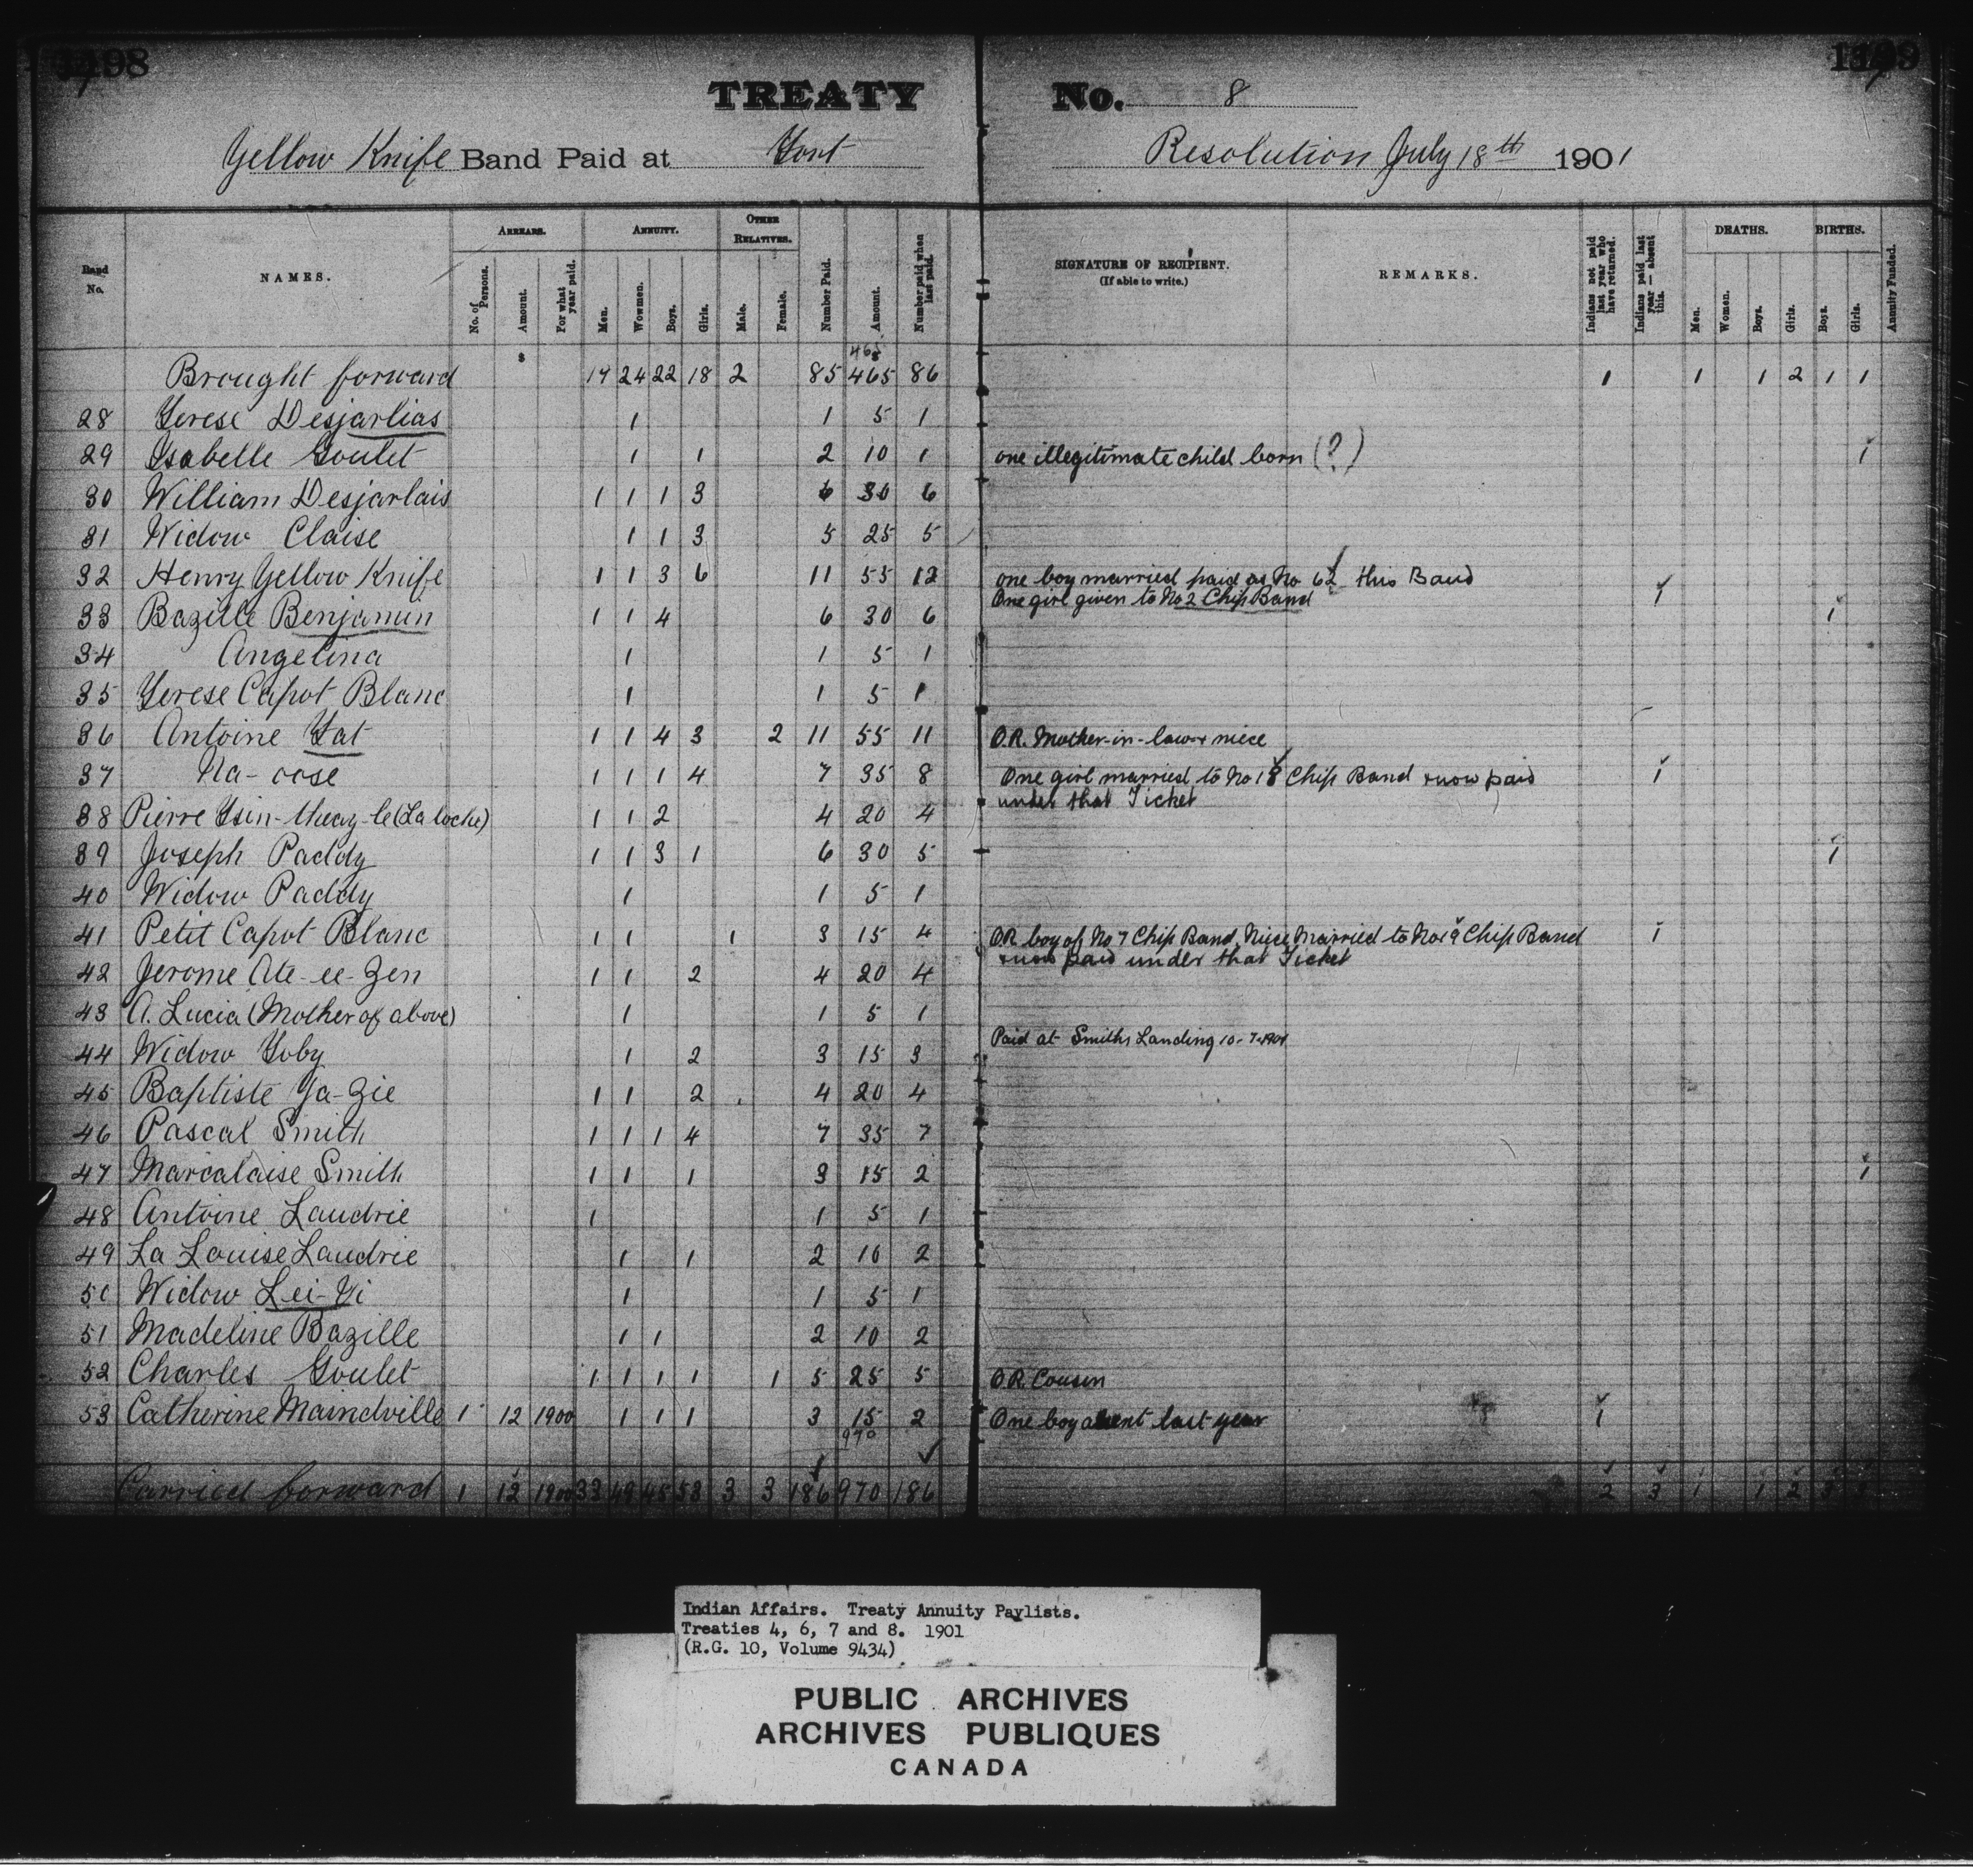 98
TREATY No. 8
Yellow Knife Band Paid at Fort Resolution July 18th 1901
Band No.
NAMES.
ARREARS.
No. of Persons.
Amount.
For what year paid.
ANNUITY.
Men.
Wowmen.
Boys.
Girls.
OTHER RELATIVES.
Male.
Female.
Number Paid.
Amount.
Number paid when last paid.
SIGNATURE OF RECIPIENT.
(If able to write.)
REMARKS.
Indians not paid last year who have returned.
Indians paid last year — absent this.
DEATHS.
Men.
Women.
Boys.
Girls.
BIRTHS.
Boys.
Girls.
Annuity Funded.
$
465
Brought forward 19 24 22 18 2 85 465 86 1 1 1 2 1 1
28 Terese Desjarlias 1 1 5 1
29 Isabelle Goulet 1 1 2 10 1 one illegitimate child born (?) 1
30 William Desjarlais 1 1 1 3 6 30 6
31 Widow Claise 1 1 3 5 25 5
32 Henry Yellow Knife 1 1 3 6 11 55 12 one boy married paid as No 62 this Band 1
One girl given to No 2 Chip Band
33 Bazille Benjamin 1 1 4 6 30 6 1
34 Angelina 1 1 5 1
35 Terese Capot Blanc 1 1 5 1
36 Antoine Tat 1 1 4 3 2 11 55 11 O.R. Mother-in-law & niece
37 Na-oose 1 1 1 4 7 35 8 One girl married to No 18 Chip Band & now paid 1
under that Ticket
38 Pierre Tsin-theay-le (La loche) 1 1 2 4 20 4
39 Joseph Paddy 1 1 3 1 6 30 5 1
40 Widow Paddy 1 1 5 1
41 Petit Capot Blanc 1 1 1 3 15 4 O.R. boy of No 7 Chip Band. Niece Married to No 19 Chip Band 1
& now paid under that Ticket
42 Jerome Ate-ee-Zen 1 1 2 4 20 4
43 A. Lucia (Mother of above) 1 1 5 1
Paid at Smiths Landing 10-7-1901
44 Widow Toby 1 2 3 15 3
45 Baptiste Ya-Zie 1 1 2 4 20 4
46 Pascal Smith 1 1 1 4 7 35 7
47 Marcalaise Smith 1 1 1 3 15 2 1
48 Antoine Laudrie 1 1 5 1
49 La Louise Laudrie 1 1 2 10 2
50 Widow Lei-Yi 1 1 5 1
51 Madeline Bazille 1 1 2 10 2
52 Charles Goulet 1 1 1 1 1 5 25 5 O.R. Cousin
53 Catherine Maindville 1 12 1900 1 1 1 3 15 2 One boy absent last year 1
970
Carried forward 1 12 1900 33 48 45 53 3 3 186 970 186 2 3 1 1 2 3 3
Indian Affairs. Treaty Annuity Paylists.
Treaties 4, 6, 7 and 8. 1901
(R.G. 10, Volume 9434)
PUBLIC ARCHIVES
ARCHIVES PUBLIQUES
CANADA